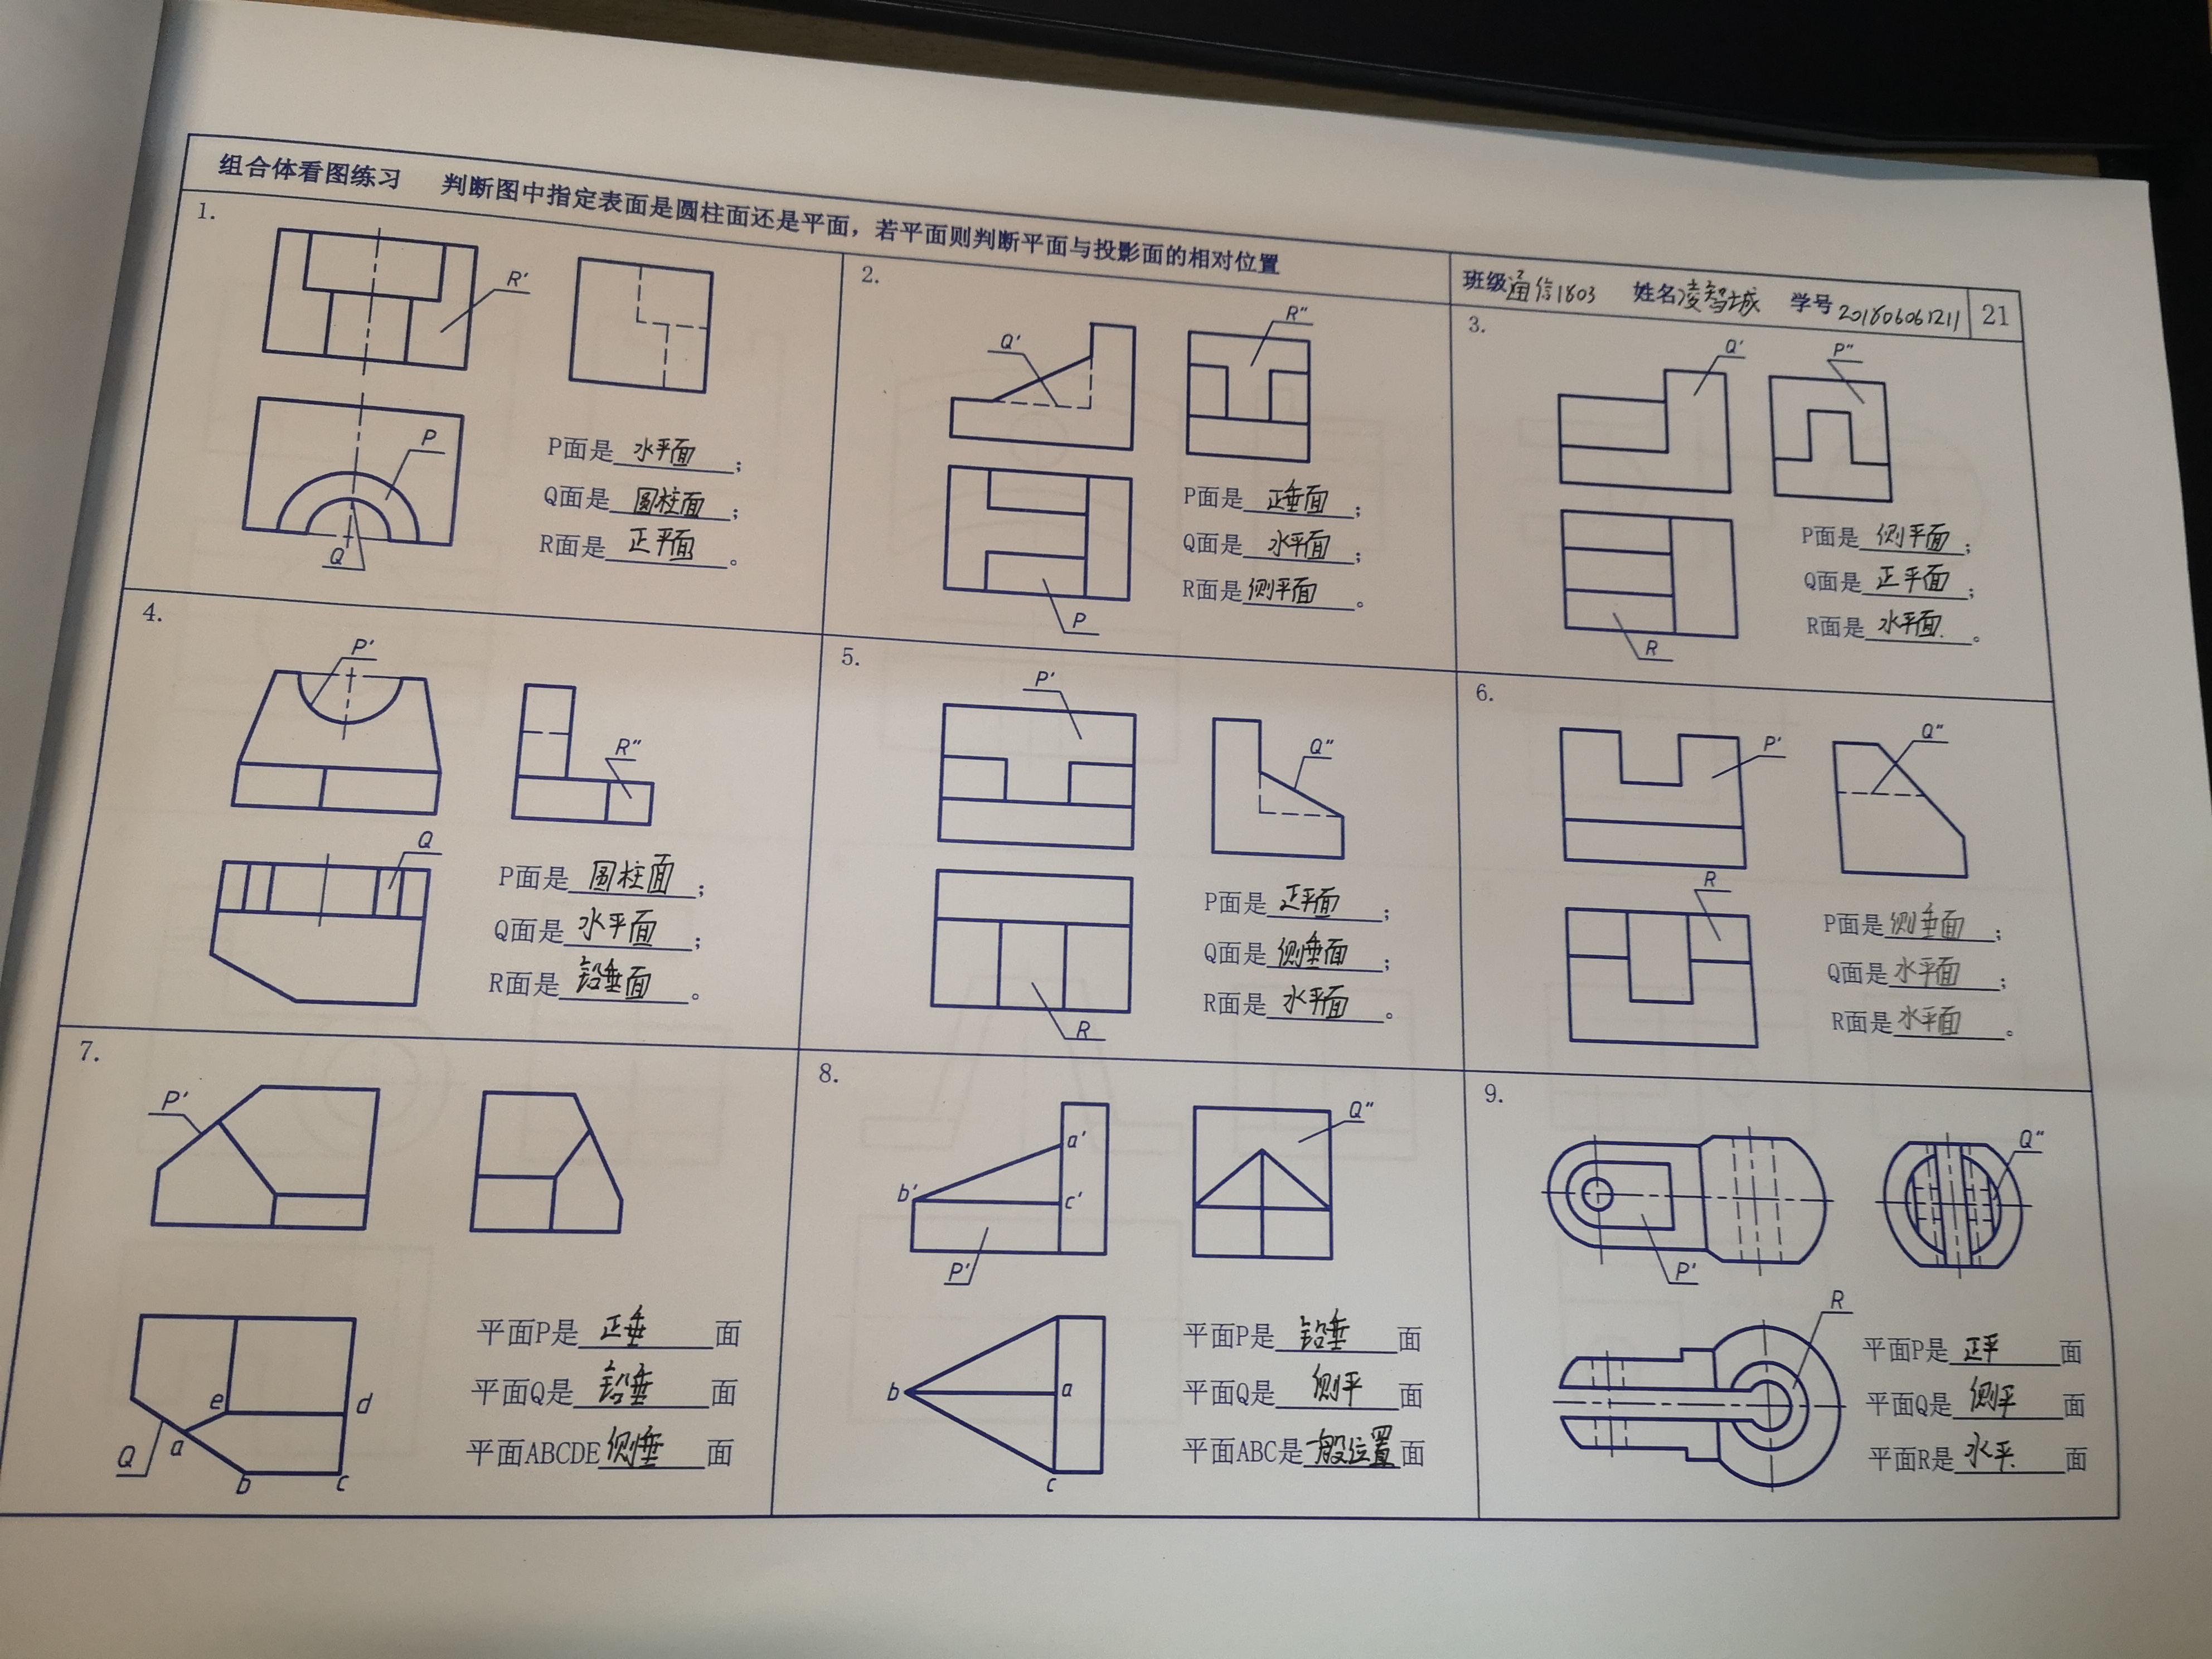 组合体看图练习 判断图中指定表面是圆柱面还是平面，若平面则判断平面与投影面的相对位置
班级通信1803 姓名凌智城 学号201806061211 21
1.
R′
P
Q
P面是水平面；
Q面是圆柱面；
R面是正平面。
2.
Q′
R″
P
P面是正垂面；
Q面是水平面；
R面是侧平面。
3.
Q′
P″
R
P面是侧平面；
Q面是正平面；
R面是水平面。
4.
P′
R″
Q
P面是圆柱面；
Q面是水平面；
R面是铅垂面。
5.
P′
Q″
R
P面是正平面；
Q面是侧垂面；
R面是水平面。
6.
P′
Q″
R
P面是侧垂面；
Q面是水平面；
R面是水平面。
7.
P′
e
d
Q
a
b
c
平面P是正垂面
平面Q是铅垂面
平面ABCDE侧垂面
8.
a′
b′
c′
P′
Q″
b
a
c
平面P是铅垂面
平面Q是侧平面
平面ABC是一般位置面
9.
P′
Q″
R
平面P是正平面
平面Q是侧平面
平面R是水平面